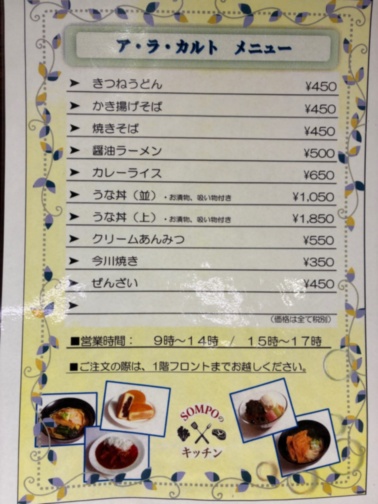 ア・ラ・カルト メニュー
➤ きつねうどん ¥450
➤ かき揚げそば ¥450
➤ 焼きそば ¥450
➤ 醤油ラーメン ¥500
➤ カレーライス ¥650
➤ うな丼（並）・お漬物、吸い物付き ¥1,050
➤ うな丼（上）・お漬物、吸い物付き ¥1,850
➤ クリームあんみつ ¥550
➤ 今川焼き ¥350
➤ ぜんざい ¥450
➤
（価格は全て税別）
■営業時間： 9時～14時 / 15時～17時
■ご注文の際は、1階フロントまでお越しください。
SOMPOの
キッチン